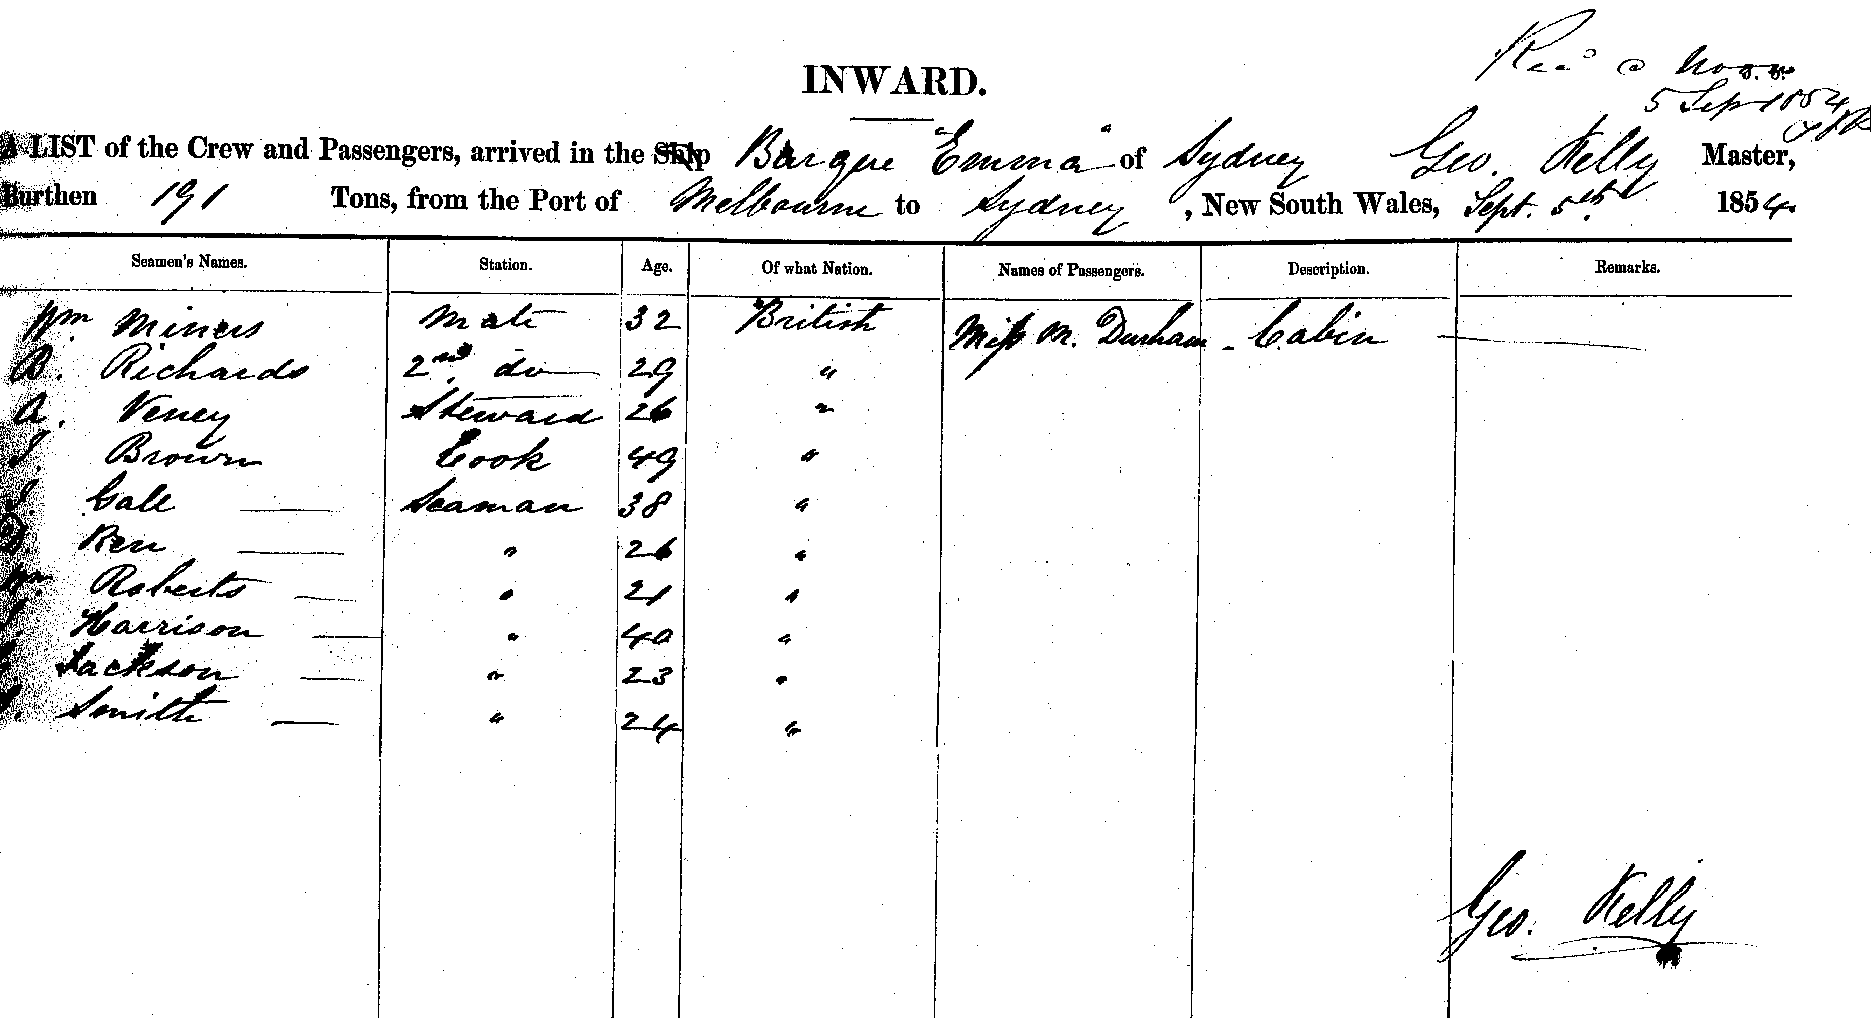 INWARD.
Rec'd @ Noon
5 Sep 1854
A LIST of the Crew and Passengers, arrived in the Ship Barque "Emma" of Sydney Geo. Kelly Master,
Burthen 191 Tons, from the Port of Melbourne to Sydney, New South Wales, Sept. 5th 1854.
Seamen's Names. Station. Age. Of what Nation. Names of Passengers. Description. Remarks.
Wm Miners Mate 32 British Miss M. Durham - Cabin —
B. Richards 2nd. do 29 "
A. Veney Steward 26 "
Brown Cook 49 "
Gall — Seaman 38 "
Ren — " 26 "
Wm. Roberts — " 21 "
Harrison — " 40 "
Jackson — " 23 "
Smith — " 24 "
Geo. Kelly